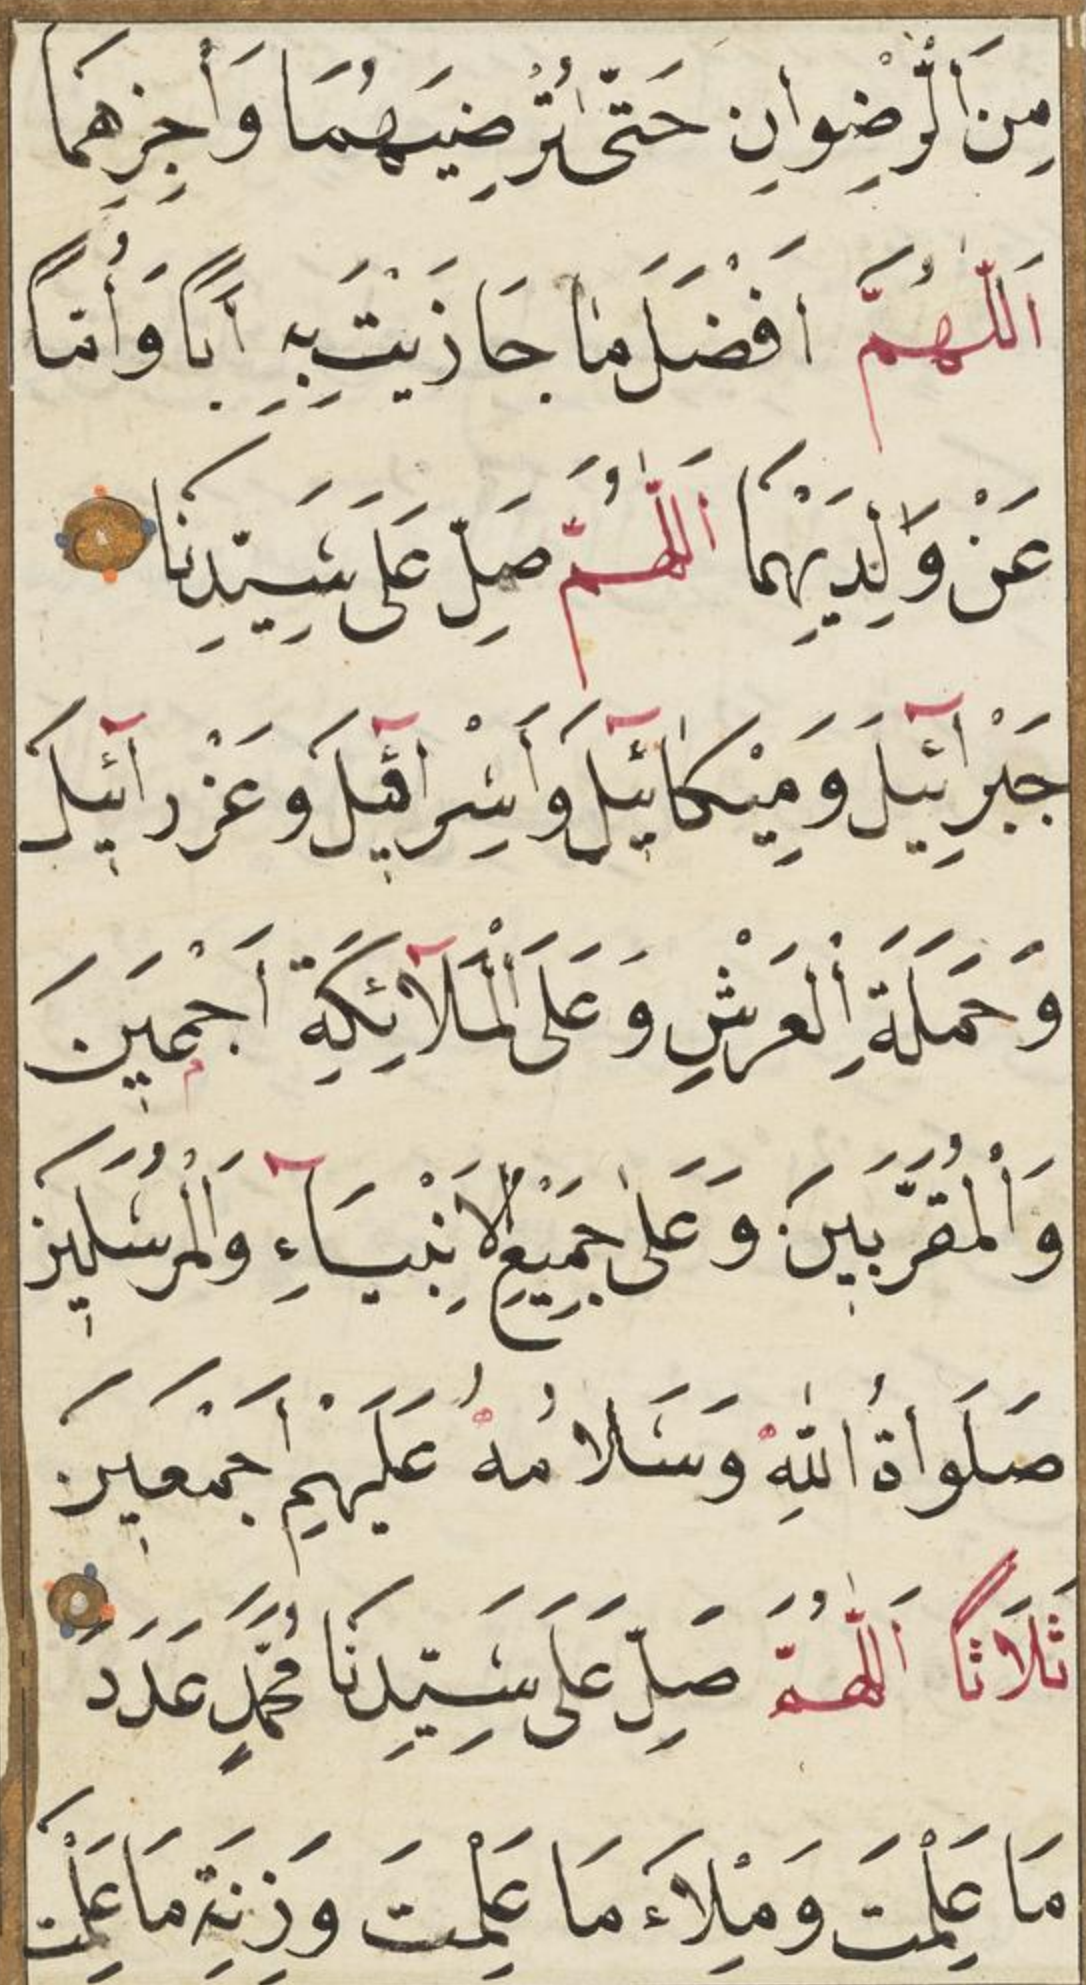 مِنَ الرِّضْوانِ حَتّٰى تُرْضِيَهُمَا وَأَجِزْهِمَا
اَللّٰهُمَّ اَفْضَلَ مَا جَازَيْتَ بِهِ اَبًا وَأُمًّا
عَنْ وَالِدَيْهِمَا اَللّٰهُمَّ صَلِّ عَلَى سَيِّدِنَا
جَبْرَآئِيلَ وَمِيْكَآئِيلَ وَأَسْرَآفِيلَ وَعَزْرَآئِيلَ
وَحَمَلَةِ الْعَرْشِ وَعَلَى الْمَلآئِكَةِ اَجْمَعِينَ
وَالْمُقَرَّبِينَ وَعَلٰى جَمِيْعِ الْاَنْبِيَآءِ وَالْمُرْسَلِينَ
صَلَوَاةُ اللّٰهِ وَسَلَامُهُ عَلَيْهِمْ اَجْمَعِينَ
ثَلَاثًا اَللّٰهُمَّ صَلِّ عَلَى سَيِّدِنَا مُحَمَّدٍ عَدَدَ
مَا عَلِمْتَ وَمِلْاءَ مَا عَلِمْتَ وَزِنَةَ مَا عَلِمْتَ